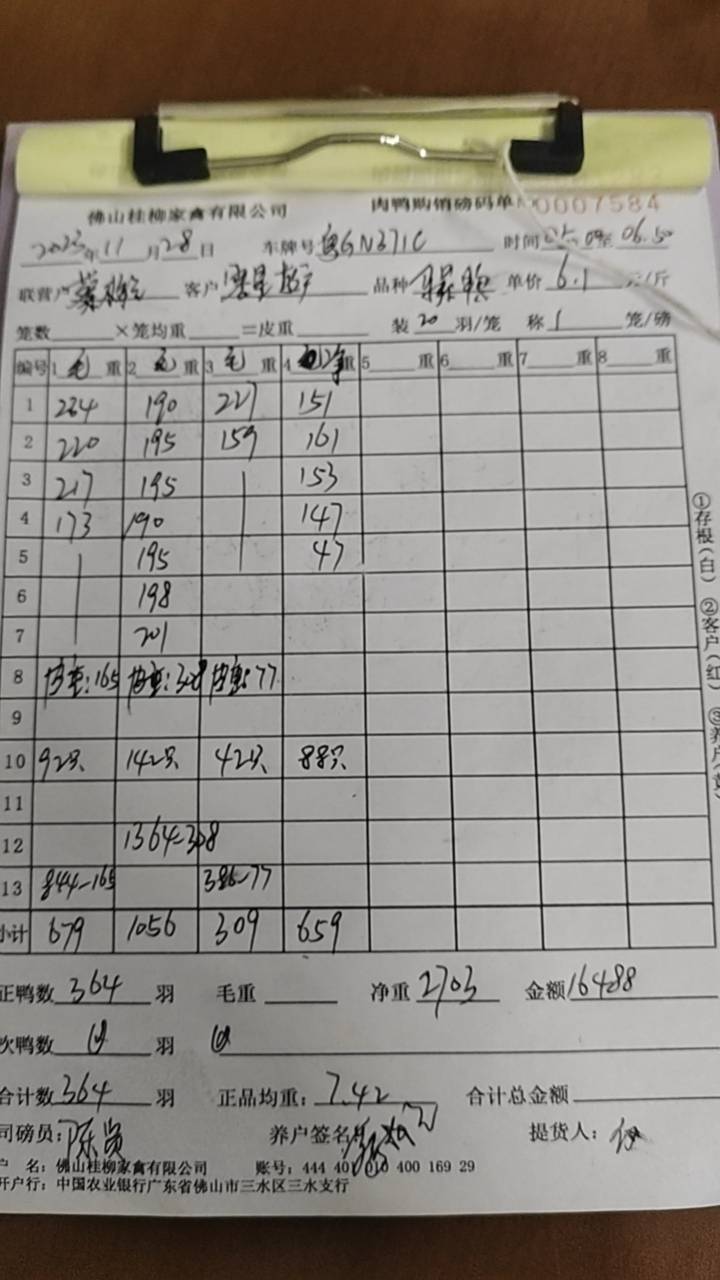 佛山桂柳家禽有限公司 肉鸭购销磅码单 0007584
2023年11月28日 车牌号 粤GN371C 时间 至 06.50
联营户 客户 品种 单价 6.1 元/斤
笼数 ×笼均重 =皮重 装 20 羽/笼 称 1 笼/磅
编号 1 毛 重 2 毛 重 3 毛 重 4 净 重 5 重 6 重 7 重 8 重
1 234 190 227 151
2 220 195 159 161
3 217 195 153
4 173 190 147
5 195 47
6 198
7 201
8 均重:165 均重:308 均重:77
9
10 92只 142只 42只 88只
11
12 1364-308
13 844-165 386-77
小计 679 1056 309 659
正鸭数 364 羽 毛重 净重 2703 金额 16488
次鸭数 羽
合计数 364 羽 正品均重: 7.42 合计总金额
司磅员: 养户签名: 提货人:
户 名: 佛山桂柳家禽有限公司 账号: 444 401 010 400 169 29
开户行: 中国农业银行广东省佛山市三水区三水支行
①存根(白) ②客户(红) ③养户